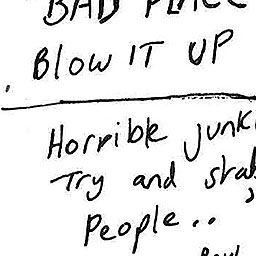 BAD PLACE
BLOW IT UP
Horrible junk
Try and stab
People..